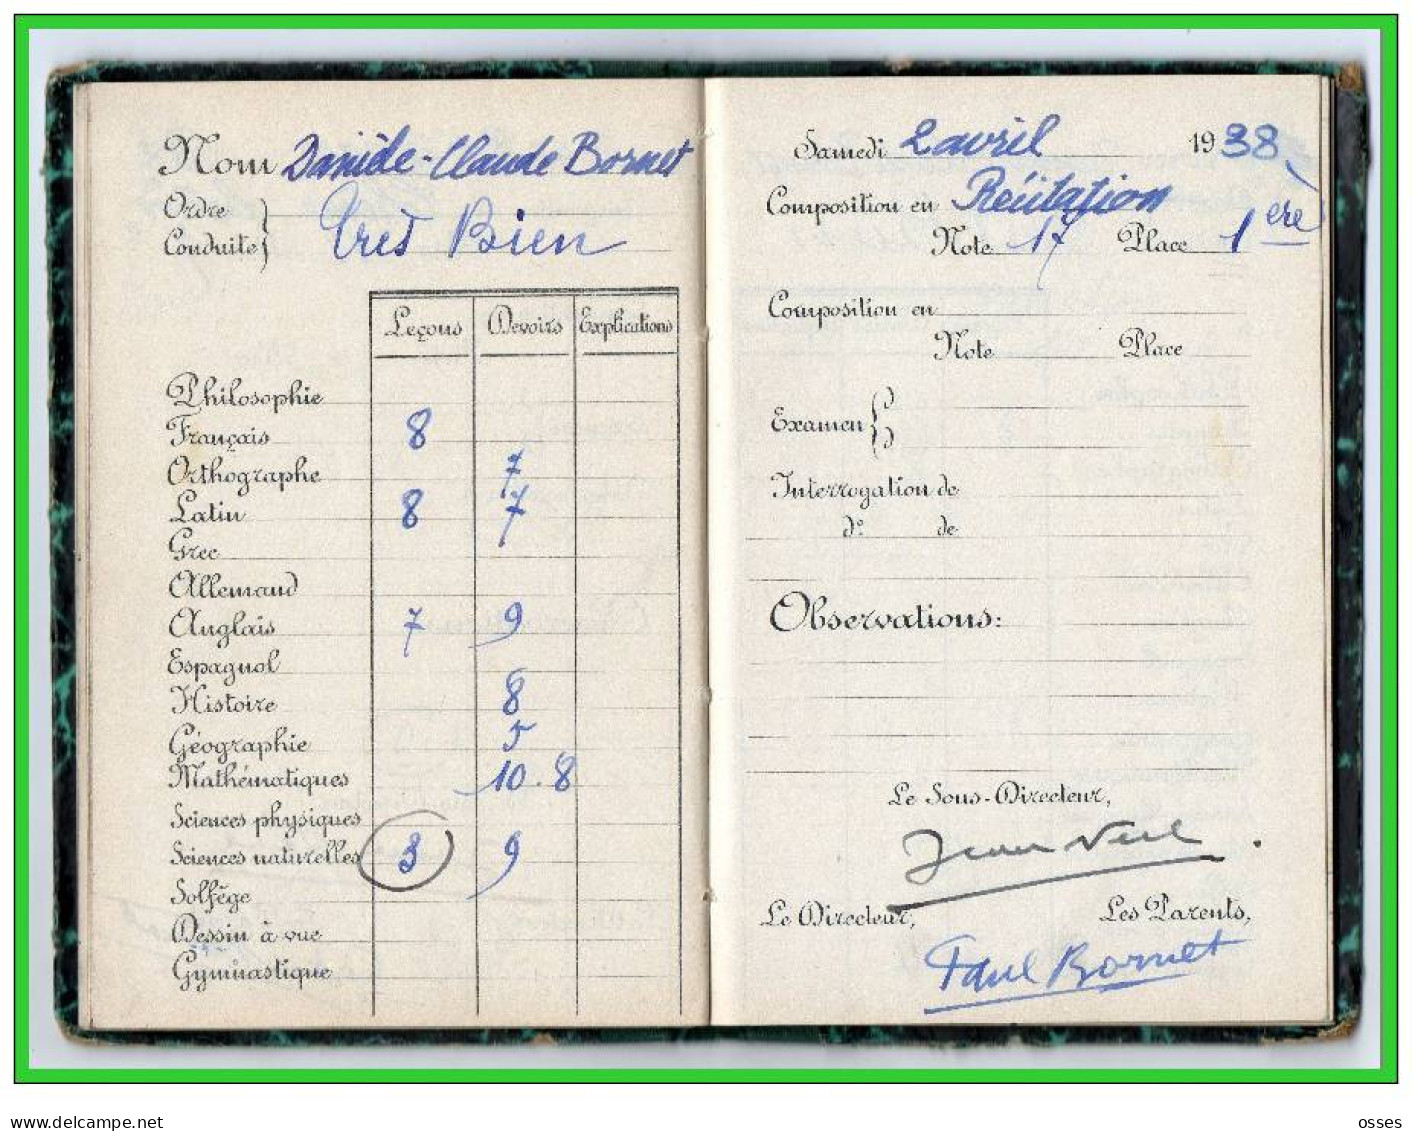 Nom Danièle-Claude Bornet
Ordre
Conduite
Très Bien
Leçons Devoirs Explications
Philosophie
Français 8
Orthographe 7
Latin 8 7
Grec
Allemand
Anglais 7 9
Espagnol
Histoire 8
Géographie 5
Mathématiques 10.8
Sciences physiques
Sciences naturelles 3 9
Solfège
Dessin à vue
Gymnastique
Samedi 2 avril 1938
Composition en Récitation
Note 17 Place 1ère
Composition en
Note Place
Examen
Interrogation de
do de
Observations:
Le Sous-Directeur,
Le Directeur, Les Parents,
Paul Bornet
www.delcampe.net osses